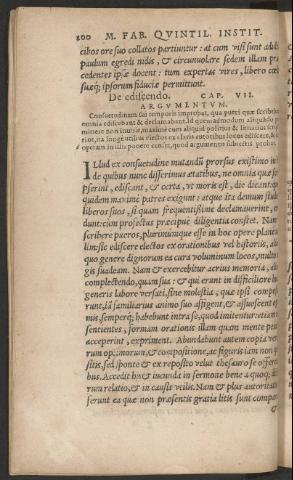 100 M. FAB. QVINTIL. INSTIT.
cibos ore suo collatos partiuntur: at cum visi sunt
paulum egredi nidis, & circunvolare sedem illam
cedentes ipsæ docent: tum expertas vires, libero
suæq; ipsorum fiduciæ permittunt.
De ediscendo. CAP. VII.
ARGVMENTVM.
Consuetudinem sui temporis improbat, qua pueri quæ scribebant
omnia ediscebant & declamabant. Id quem admodum aliquando
mittere non inutile, maxime cum aliquid politius &
rint, ita longè utilius videri ex claris autoribus locos ediscere, &
operam in illis ponere censet, quod argumentis subiectis probat.
ILlud ex consuetudine mutandũ prorsus existimo in
de quibus nunc disserimus ætatibus, ne omnia quæ
pserint, ediscant, & certa, vt moris est, die dicant: q
quidem maximè patres exigunt: atque ita demum
liberos suos, si quam frequentissime declamaverint,
dunt: cùm profectus præcipuè diligentia constet. Nam
scribere pueros, plurimumque esse in hoc opere plane
lim: sic ediscere electos ex orationibus vel historiis,
quo genere dignorum ea cura voluminum locos, mul
gis suadeam. Nam & exercebitur acrius memoria,
complectendo, quàm sua: & qui erunt in difficiliore
generis labore versati, sine molestia, quæ ipsi compo
runt, iã familiaria animo suo affigent, & assuescent
mis, semperq; habebunt intra se, quod imitentur:
sentientes, formam orationis illam quam mente
acceperint, expriment. Abundabunt autem copia ver
rum optimorum, & compositione, ac figuris iam non
sitis, sed sponte & ex reposito velut thesauro se offere
bus. Accedit his & iucunda in sermone bene à quoq;
rum relatio, & in causis vtilis. Nam & plus autoritatis
ferunt ea quæ non præsentis gratia litis sunt compa
&